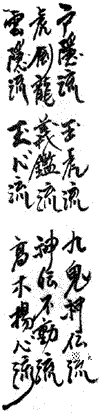 戸隠流 玉虎流 九鬼神伝流
虎倒龍 義鑑流 神伝不動流
雲隠流 玉心流 高木揚心流